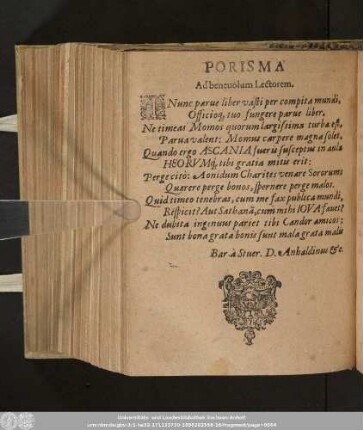 PORISMA
Ad beneuolum Lectorem.
I Nunc parue liber vasti per compita mundi,
Officioq; tuo fungere parue liber.
Ne timeas Momos quorum largissima turba est,
Parua valent: Momus carpere magna solet.
Quando ergo ASCANIA fueris susceptus in aula
HEORVMq; tibi gratia mitis erit:
Perge citò: Aonidum Charites venare Sororum
Quærere perge bonos, spernere perge malos.
Quid timeo tenebras, cum me fax publica mundi,
Respicit? Aut Sathanā, cum mihi IOVA fauet?
Ne dubita ingenuus pariet tibi Candor amicos;
Sunt bona grata bonis sunt mala grata malis
Bar. à Stuer. D. Anhaldinus &c.
Universitäts- und Landesbibliothek Sachsen-Anhalt